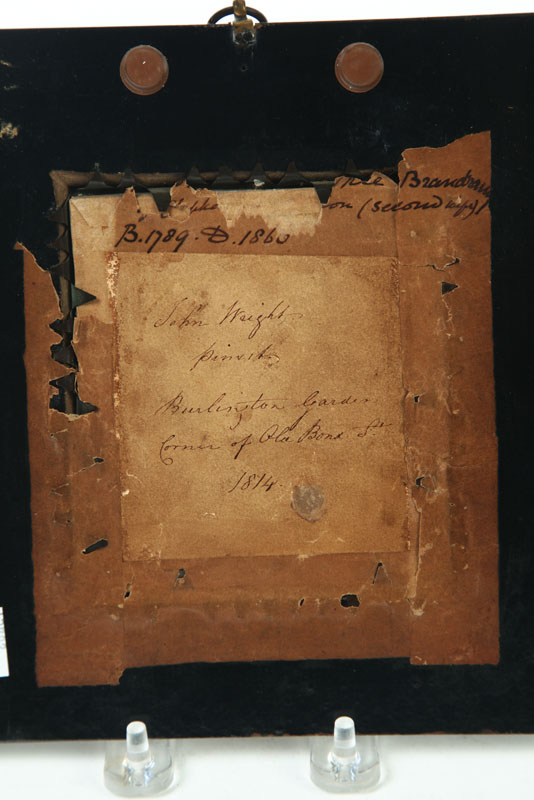 Brandram
(second copy)
B. 1789. D. 1860
John Wright
pinxit
Burlington Garden
Corner of Old Bond St
1814.